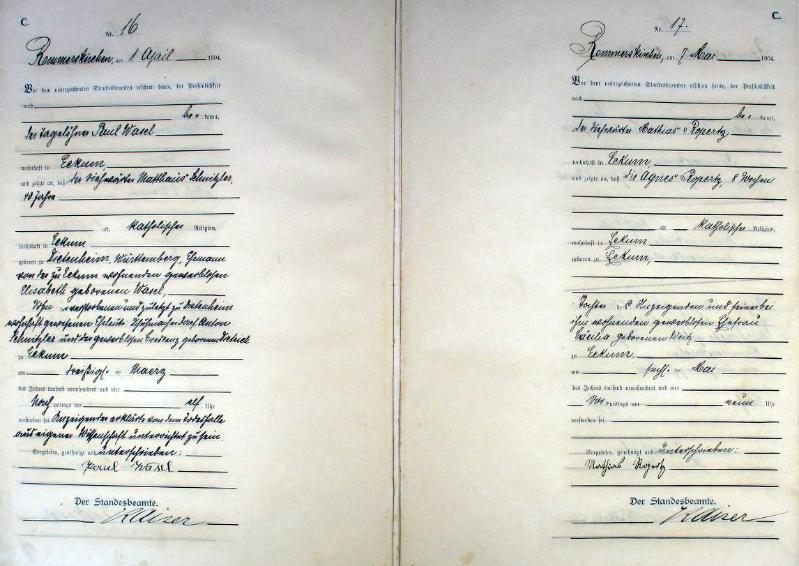 C.
Nr. 16
Rommerskirchen, am 1 April 1904.
Vor dem unterzeichneten Standesbeamten erschien heute, der Persönlichkeit
nach
be= kannt,
der Tagelöhner Paul Wasel
wohnhaft in Eckum
und zeigte an, daß der Viehwärter Matthäus Schnitzler,
48 Jahre
katholischer Religion,
wohnhaft in Eckum
geboren zu Dietenheim, Württemberg, Ehemann
von der zu Eckum wohnenden gewerblosen
Elisabeth geborenen Wasel,
Sohn der verstorbenen und zuletzt zu Dietenheim
wohnhaft gewesenen Eheleute Anton
Schnitzler und der gewerblosen geborenen Dietrich
zu Eckum
am dreißigsten Maerz
des Jahres tausend neunhundert und vier
Nach mittags um elf Uhr
verstorben sei. Anzeigender erklärte von dem Todesfalle
aus eigener Wissenschaft unterrichtet zu sein
Vorgelesen, genehmigt und unterschrieben:
Paul Wasel
Der Standesbeamte.
Kaiser
C.
Nr. 17.
Rommerskirchen, am 7 Mai 1904.
Vor dem unterzeichneten Standesbeamten erschien heute, der Persönlichkeit
nach
be= kannt,
der Viehwärter Mathias Ropertz
wohnhaft in Eckum
und zeigte an, daß die Agnes Ropertz, 8 Wochen
katholischer Religion,
wohnhaft in Eckum
geboren zu Eckum,
Tochter des Anzeigenden und seiner bei
ihm wohnenden gewerblosen Ehefrau
Cäcilia geborenen Weitz
zu Eckum
am sechsten Mai
des Jahres tausend neunhundert und vier
Vor mittags um neun Uhr
verstorben sei.
Vorgelesen, genehmigt und unterschrieben:
Mathias Ropertz
Der Standesbeamte.
Kaiser